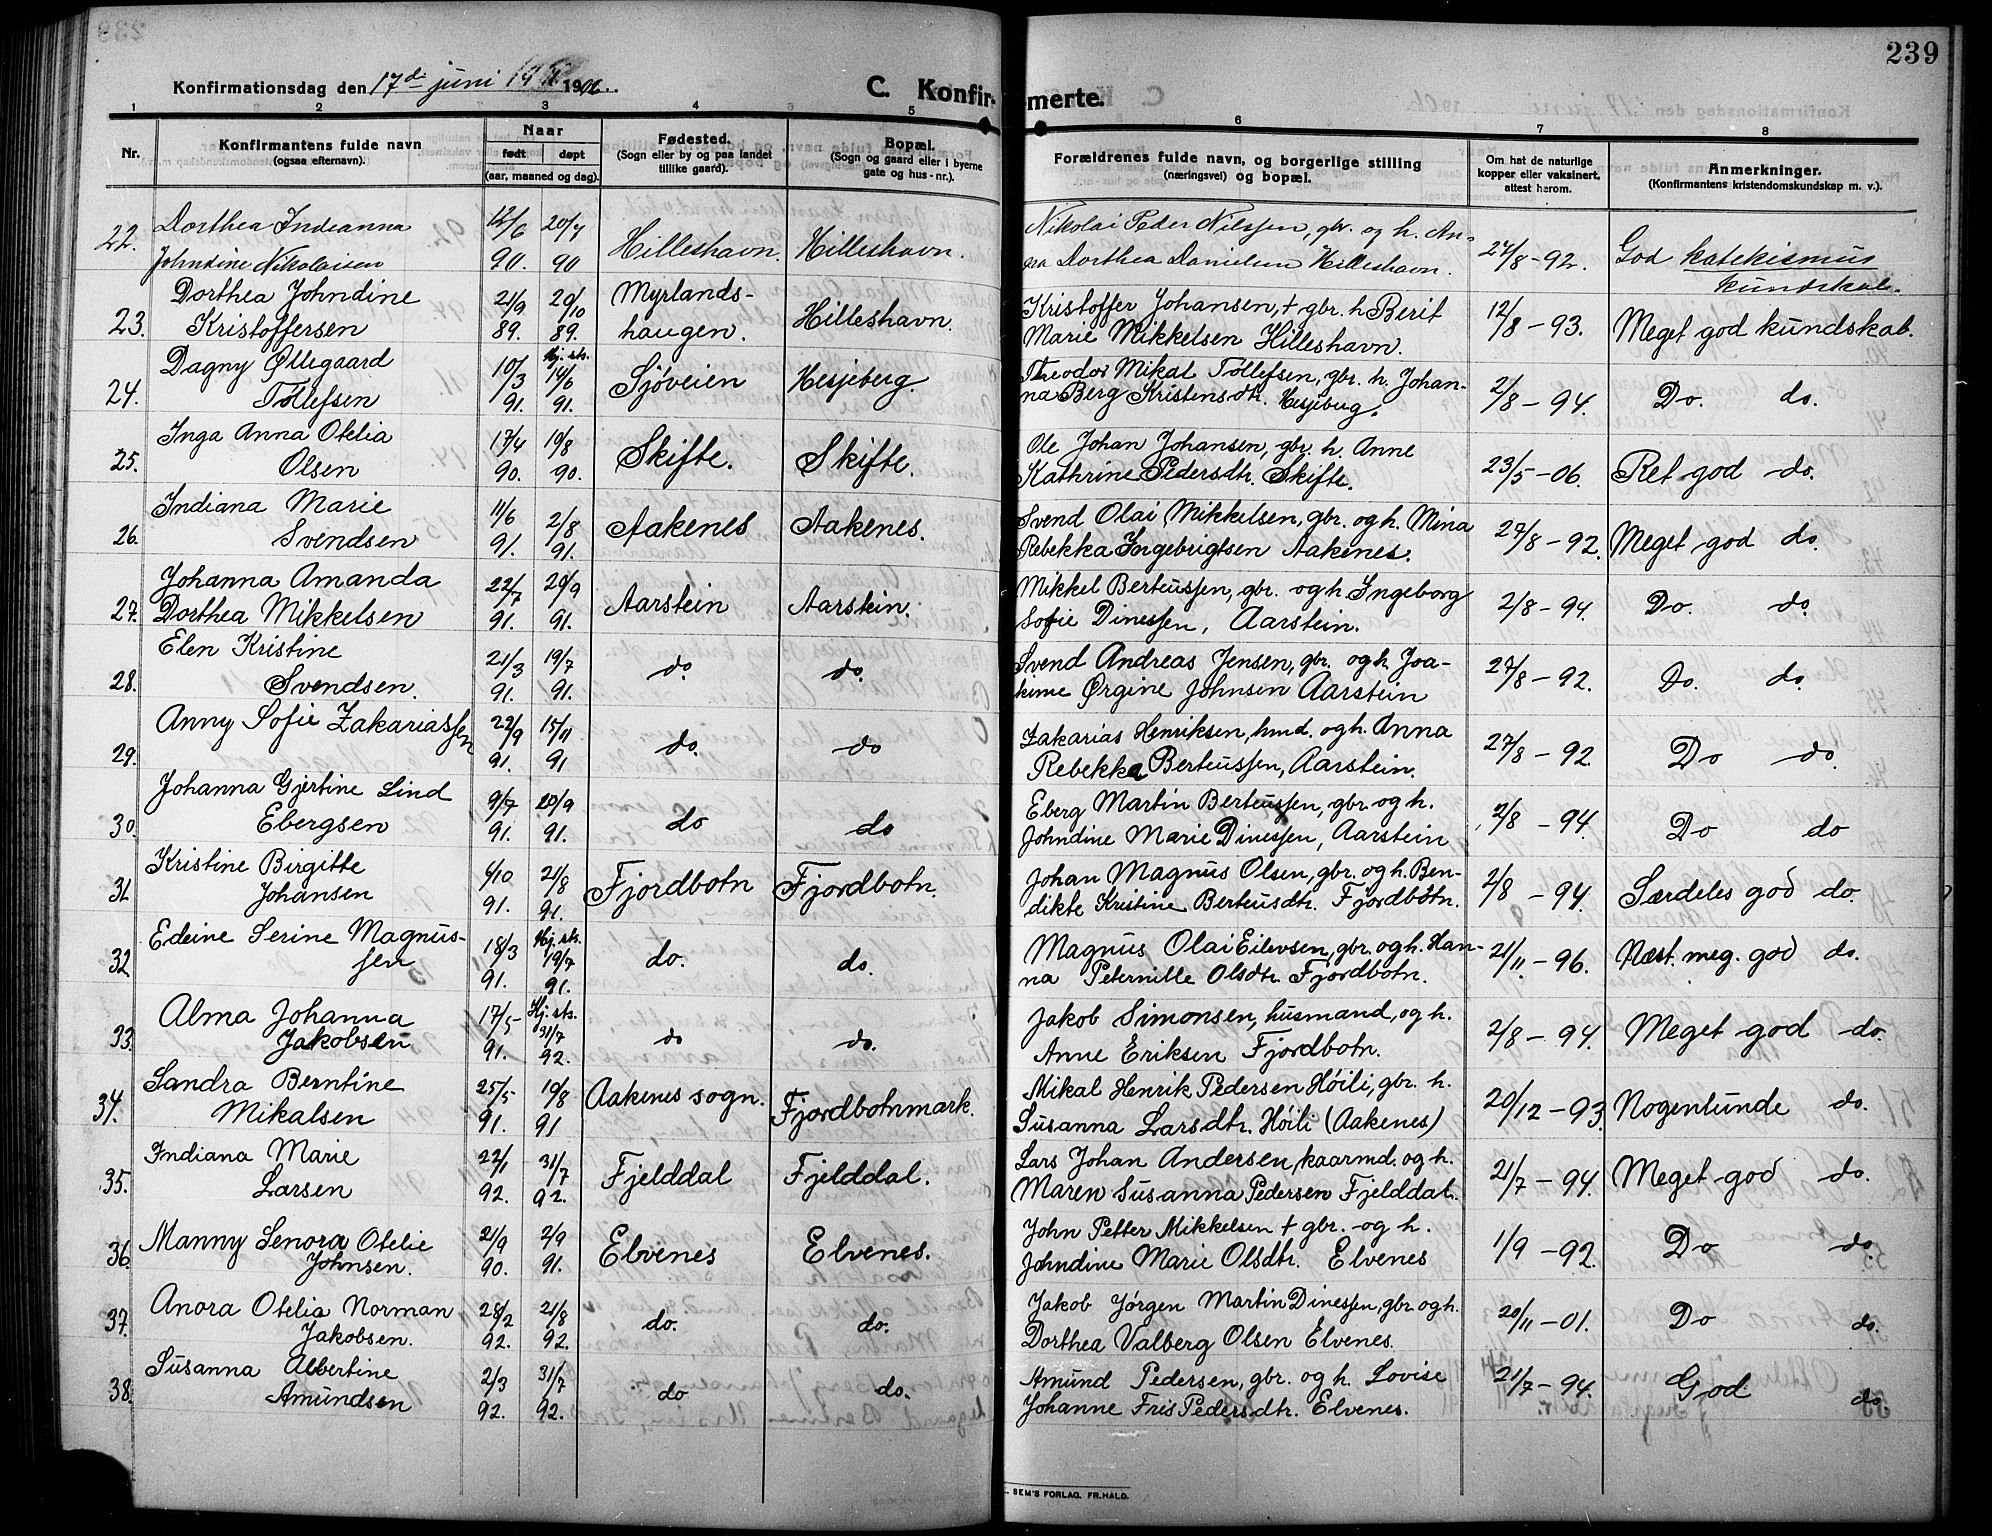 239
Konfirmationsdag den 17de juni 1906.
C. Konfirmerte.
1 2 3 4 5 6 7 8
Nr.
Konfirmantens fulde navn
(ogsaa efternavn).
Naar
født døpt
(aar, maaned og dag).
Fødested.
(Sogn eller by og paa landet
tillike gaard).
Bopæl.
(Sogn og gaard eller i byerne
gate og hus-nr.).
Forældrenes fulde navn, og borgerlige stilling
(næringsvei) og bopæl.
Om hat de naturlige
kopper eller vaksinert,
attest herom.
Anmerkninger.
(Konfirmantens kristendomskundskap m. v.).
22. Dorthea Indianna 12/6 20/7 Hilleshavn. Hilleshavn. Nikolai Peder Nilssen, gbr. og h. An- 27/8-92. God katekismus
Johndine Nikolaisen 90. 90 na Dorthea Danielsen Hilleshavn. kundskab.
23. Dorthea Johndine 21/9 20/10 Myrlands- Hilleshavn. Kristoffer Johansen, + gbr. h. Berit 12/8-93. Meget god kundskab.
Kristoffersen 89. 89. haugen. Marie Mikkelsen Hilleshavn.
24. Dagny Øllegaard 10/3 Hj. sk. 14/6 Sjøveien Hesjeberg. Theodor Mikal Tollefsen, gbr. h. Johan- 2/8-94. Do. do.
Tollefsen 91. 91. na Berg Kristensdtr. Hesjebug.
25. Inga Anna Otelia 17/4 19/8 Skifte. Skifte. Ole Johan Johansen, gbr. h. Anne 23/5-06. Ret god do.
Olsen 90. 90. Kathrine Pedersdtr. Skifte.
26. Indiana Marie 11/6 2/8 Aakenes Aakenes. Svend Olai Mikkelsen, gbr. og h. Mina 27/8-92. Meget god do.
Svendsen 91. 91. Rebekka Ingebrigtsen Aakenes.
27. Johanna Amanda 22/7 20/9 Aarstein Aarstein. Mikkel Berteussen, gbr. og h. Ingeborg 2/8-94. Do. do.
Dorthea Mikkelsen 91. 91. Sofie Dinessen, Aarstein.
28. Elen Kristine 21/3 19/7 do. do. Svend Andreas Jensen, gbr. og h. Joa- 27/8-92. Do. do.
Svendsen. 91. 91. kime Ørgine Johnsen Aarstein
29. Anny Sofie Zakariassen 22/9 15/11 do. do Zakarias Henriksen, hmd. og h. Anna 27/8-92. Do do.
91. 91 Rebekka Berteussen, Aarstein.
30. Johanna Gjertine Lind 9/7 20/9 do do Eberg Martin Berteussen, gbr. og h. 2/8-94. Do do
Ebergsen 91. 91. Johndine Marie Dinessen, Aarstein
31. Kristine Birgitte 6/10 21/8 Fjordbotn Fjordbotn. Johan Magnus Olsen, gbr. og h. Ben- 2/8-94. Særdeles god do.
Johansen 91. 91. dikte Kristine Berteusdtr. Fjordbotn.
32. Edeine Serine Magnus- 18/3 Hj. sk. 19/7 do. do. Magnus Olai Eilevsen, gbr. og h. Han- 21/11-96. Næst. meg. god do.
sen 91. 91. na Peternille Olsdtr. Fjordbotn.
33. Alma Johanna 17/5 Hj. sk. 31/7 do do. Jakob Simonsen, husmand, og h. 2/8-94. Meget god do.
Jakobsen 91. 92. Anne Eriksen Fjordbotn.
34. Sandra Berntine 25/5 19/8 Aakenes sogn. Fjordbotnmark. Mikal Henrik Pedersen Høili, gbr. h. 20/12-93. Nogenlunde do.
Mikalsen 91. 91 Susanna Larsdtr. Høili (Aakenes)
35. Indiana Marie 22/1 31/7 Fjelddal Fjelddal. Lars Johan Andersen, kaarmd. og h. 21/7-94. Meget god do.
Larsen 92. 92. Maren Susanna Pedersen Fjelddal.
36. Manny Lenora Otelie 21/9 2/9 Elvenes Elvenes. John Petter Mikkelsen + gbr. og h. 1/9-92. Do do.
Johnsen. 90. 91. Johndine Marie Olsdtr. Elvenes
37. Anora Otelia Norman 28/2 21/8 do. do. Jakob Jørgen Martin Dinessen, gbr. og h. 20/11-01. Do do.
Jakobsen. 92. 92. Dorthea Valberg Olsen Elvenes.
38. Susanna Albertine 2/3 31/7 do do. Amund Pedersen, gbr. og h. Lovise 21/7-94. God do
Amundsen 92. 92. Johanne Fris Pedersdtr. Elvenes.
SEM'S FORLAG. FR.HALD.